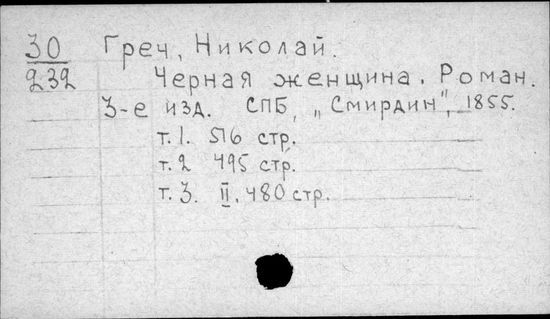 30
232
Греч, Николай.
Черная женщина. Роман.
3-е изд. СПБ, „Смирдин", 1855.
т. 1. 516 стр.
т. 2 495 стр.
т. 3. II. 480 стр.